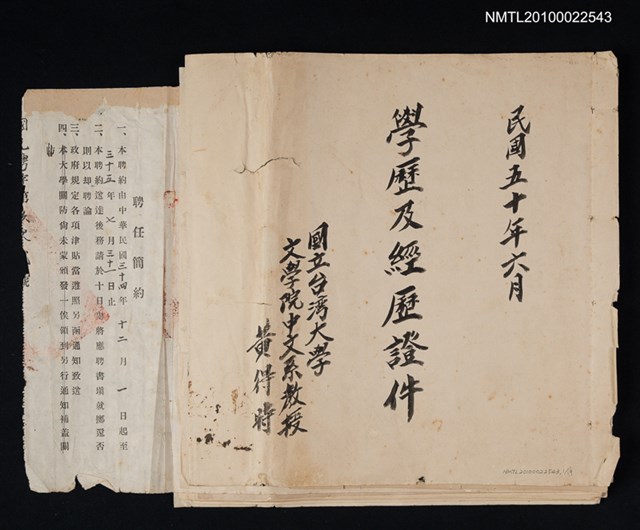 NMTL20100022543
民國五十年六月
學歷及經歷證件
國立台湾大学
文學院中文系教授
黃得時
聘任簡約
一、本聘約由中華民國三十四年十二月一日起至
三十五年七月三十一日止
二、本聘約送達後務請於十日內將應聘書擲還否
則以却聘論
三、政府規定各項津貼當遵照另函通知致送
四、本大學關防尚未蒙頒發一俟領到另行通知補蓋關